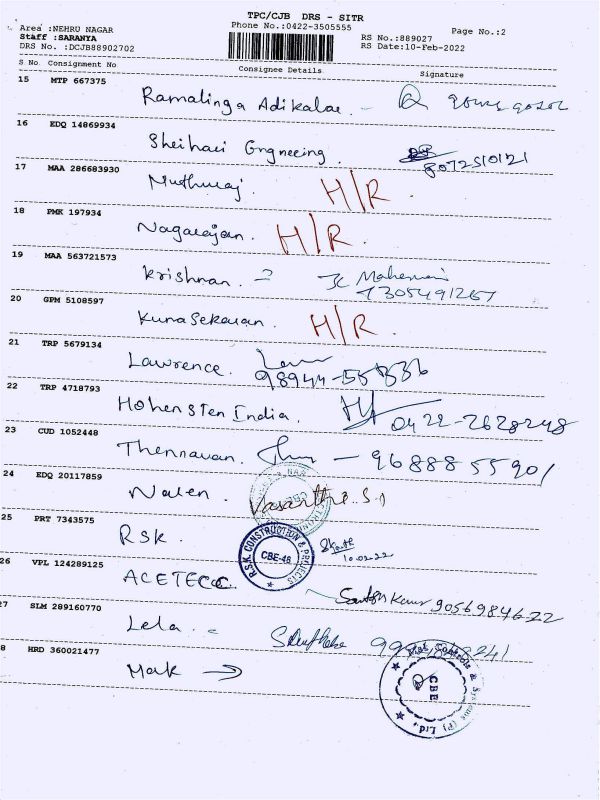 TPC/CJB DRS - SITR
Area :NEHRU NAGAR Phone No.:0422-3505555 Page No.:2
Staff :SARANYA RS No.:889027
DRS No. :DCJB88902702 RS Date:10-Feb-2022
S No. Consignment No Consignee Details Signature
15 MTP 667375
Ramalinga Adikalar
16 EDQ 14869934
Engneering 8072510121
17 MAA 286683930
Muthuraj. H/R.
18 PMK 197934
Nagarajan. H/R.
19 MAA 563721573
Krishnan.
7305491267
20 GPM 5108597
Kunasekaran. H/R.
21 TRP 5679134
Lawrence.
98944-55336
22 TRP 4718793
Hohensten India. 0422-2628248
23 CUD 1052448
Thennavan. - 9688855901
24 EDQ 20117859
Naten. Vasanthi.S
25 PRT 7343575
RSK. R.S.K. CONSTRUCTION & PROJECTS CBE-46 10.02.22
26 VPL 124289125
ACETECC. 9056984622
27 SLM 289160770
Lela.
28 HRD 360021477
Mark → Controls & Systems (P) Ltd. CBE